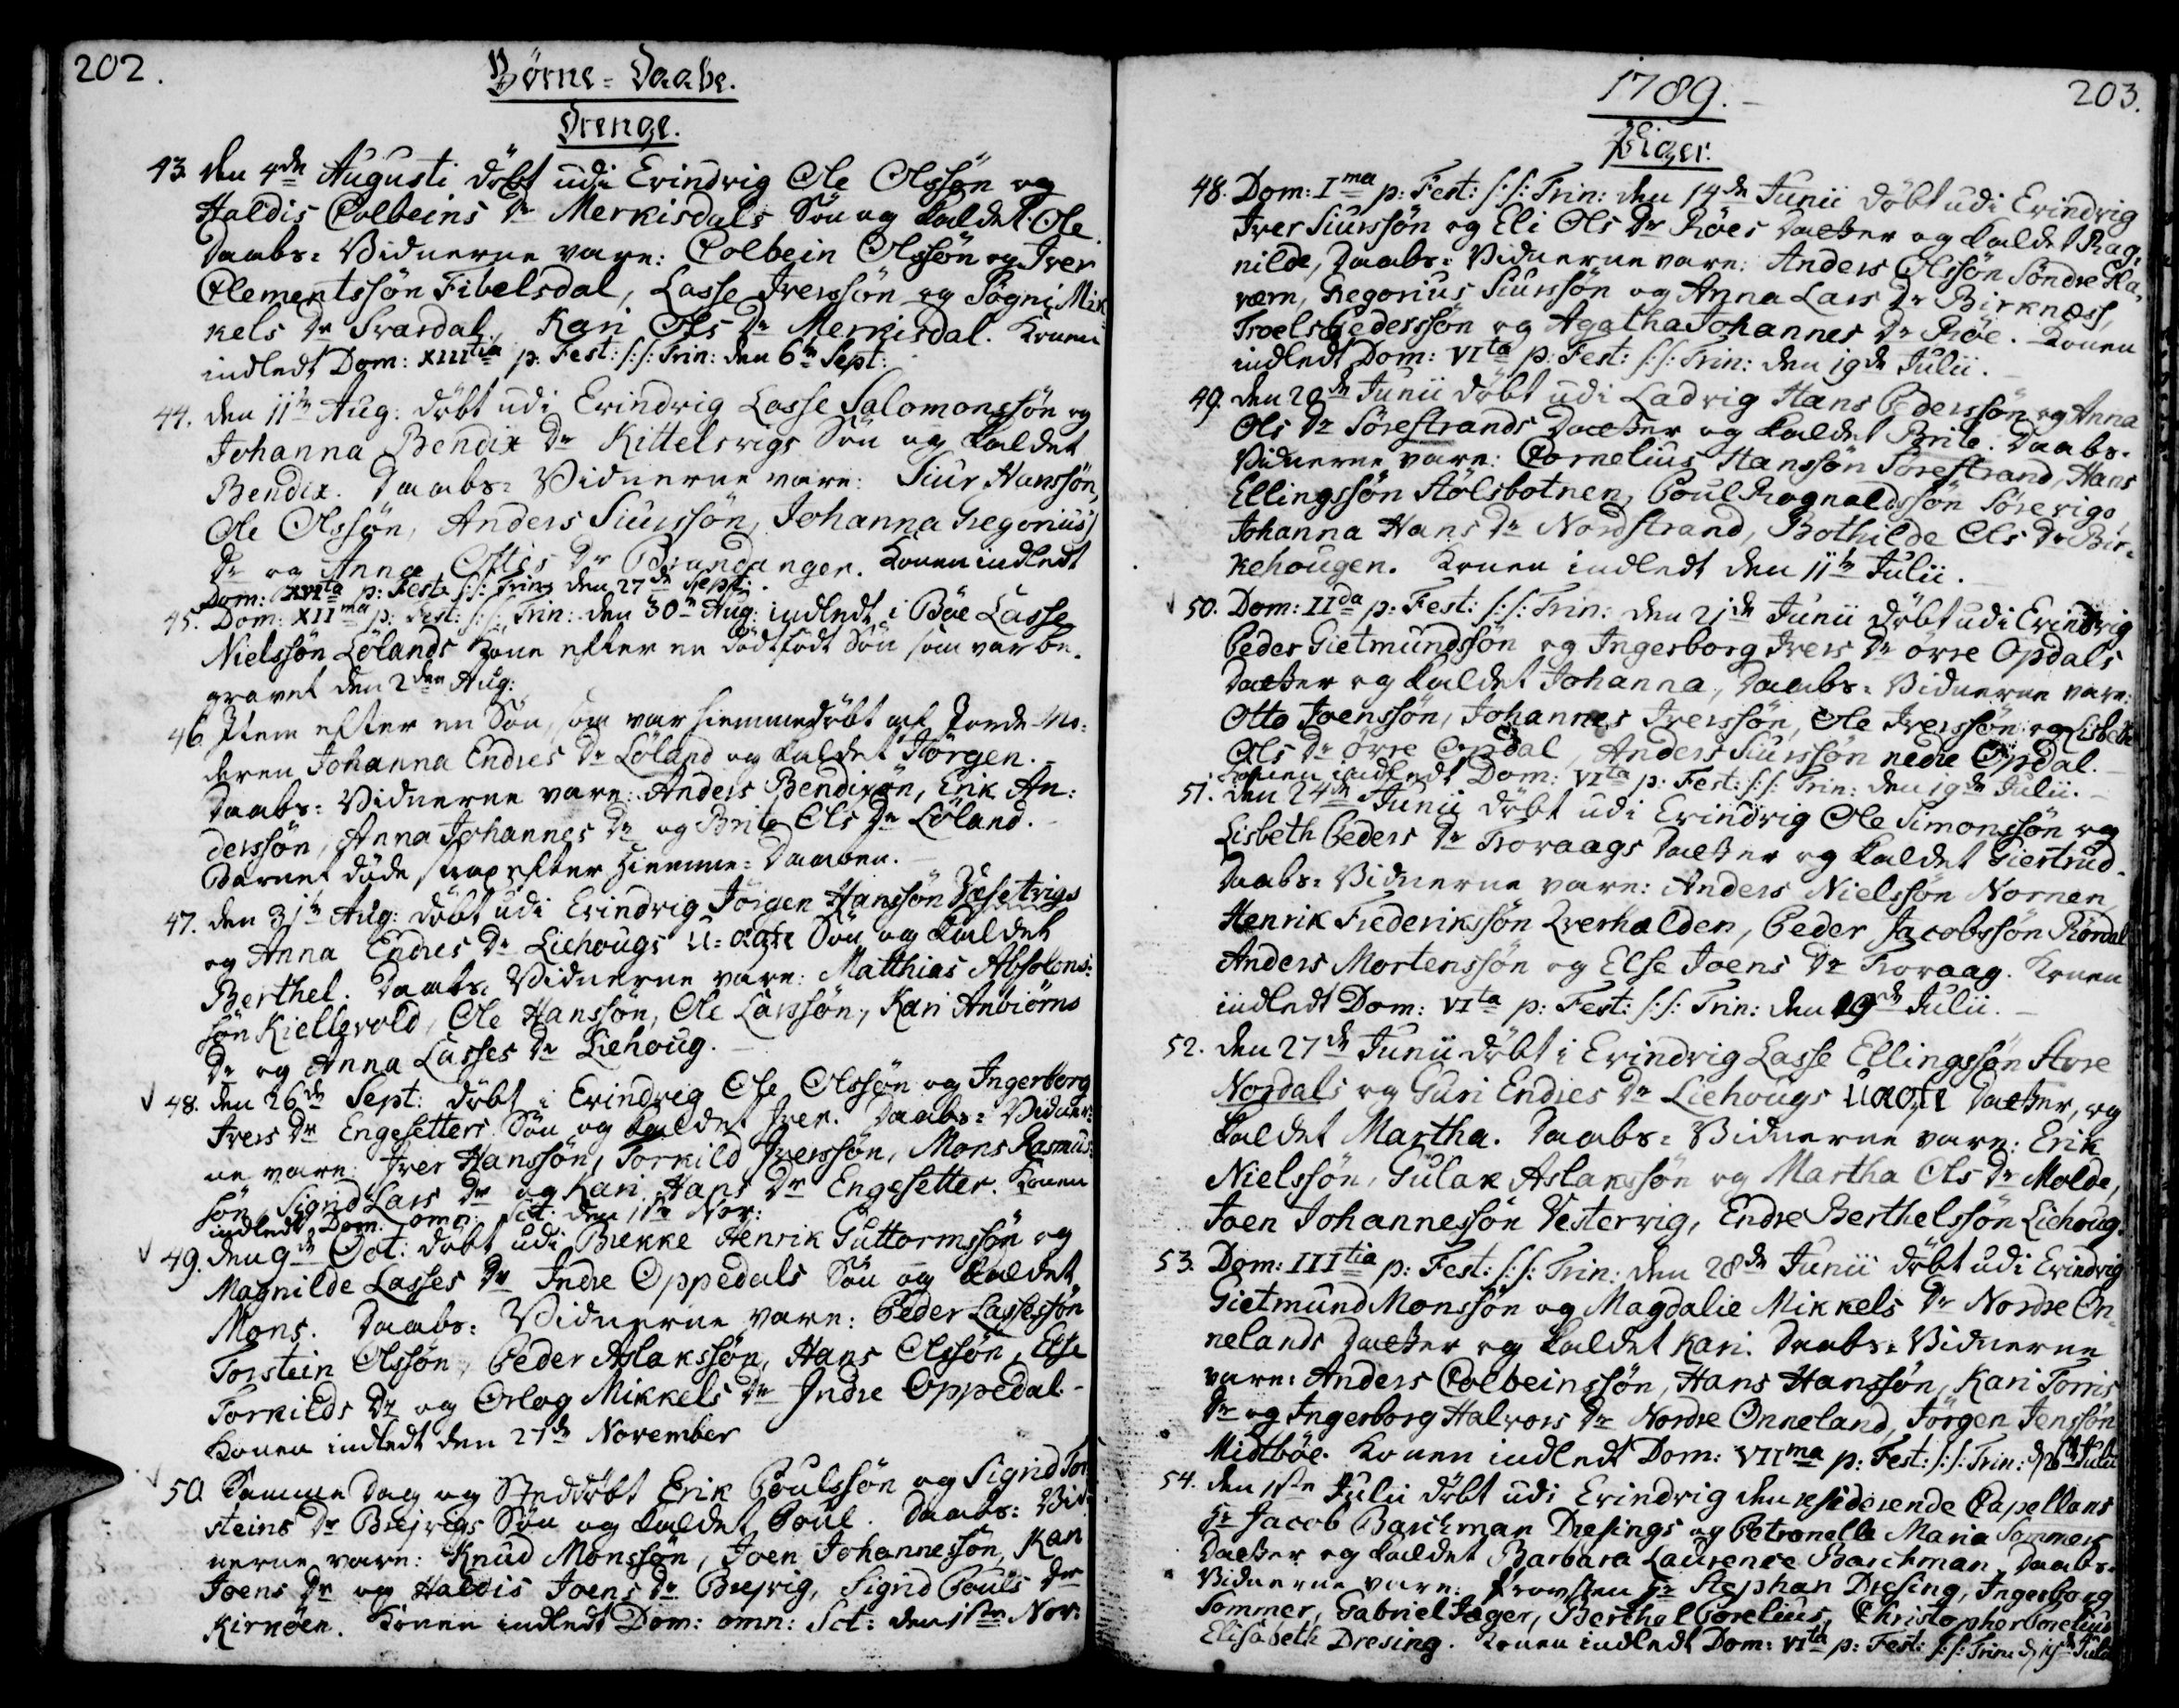 202.
Börne-Daabe.
Drenge.
43. den 4de Augusti döbt udi Evindvig Ole Olssøn og
Haldis Colbeins Dr Merkisdals Søn og kaldet Ole.
Daabs-Vidnerne vare: Colbein Olssøn og Iver
Clementssøn Fibelsdal, Lasse Iverssøn og Sögni Mik-
kels Dr Svardal, Kari Ols Dr Merkisdal. Konen
indledt Dom: XIIItia p: Fest: S:S: Trin: den 6te Sept:
44. den 11te Aug: döbt udi Evindvig Lasse Salomonssøn og
Johanna Bendix Dr Kittelsvigs Søn og kaldet
Bendix. Daabs-Vidnerne vare: Siur Hanssøn,
Ole Olssøn, Anders Siurssøn, Johanna Gregorius
Dr og Anna Dr Brandanger. Konen indledt
Dom: XVIta p: Fest: S:S: Trin: den 27de Sept:
45. Dom: XIIma p: Fest: S:S: Trin: den 30te Aug: indledt i Böe Lasse
Nielssøn Lölands Kone efter en dödfödt Søn som var be-
gravet den 2den Aug:
46. Item efter en Søn, som var hiemmedöbt af Jorde-Mo-
deren Johanna Endres Dr Löland og kaldet Jörgen.
Daabs-Vidnerne vare: Anders Bendixøn, Erik An-
derssøn, Anna Johannes Dr og Brite Ols Dr Löland.
Barnet döde strax efter Hiemme-Daaben.
47. den 31te Aug: döbt udi Evindvig Jörgen Hanssøn
og Anna Endres Dr Liehougs U-ægte Søn og kaldet
Berthel. Daabs-Vidnerne vare: Matthias Absolons-
søn Kiellevold, Ole Hanssøn, Ole Larssøn, Kari Anbiörns
Dr og Anna Lasses Dr Liehoug.
48. den 26de Sept: döbt i Evindvig Ole Olssøn og Ingerborg
Ivers Dr Engesetters Søn og kaldet Iver. Daabs-Vidner-
ne vare: Iver Hanssøn, Torkild Iverssøn, Mons Rasmus-
søn, Sigrid Lars Dr og Kari Hans Dr Engesetter. Konen
indledt Dom: omn: Sct: den 1ste Nov:
49. den 9de Oct: döbt udi Brekke Henrik Guttormssøn og
Magnilde Lasses Dr Indre Oppedals Søn og kaldet
Mons. Daabs-Vidnerne vare: Peder Lassessøn
Torstein Olssøn, Peder Aslakssøn, Hans Olssøn, Else
Torkilds Dr og Orlog Mikkels Dr Indre Oppedal.
Konen indledt den 27de November
50. Samme Dag og Sted döbt Erik Poulssøn og Sigrid Tor-
steins Dr Breivigs Søn og kaldet Poul. Daabs-Vid-
nerne vare: Knud Monssøn, Joen Johannessøn, Kari
Joens Dr og Haldis Joens Dr Breivig, Sigrid Pouls Dr
Kirköen. Konen indledt Dom: omn: Sct: den 1ste Nov:
1789.
203.
Piger.
48. Dom: Ima p: Fest: S:S: Trin: den 14de Junii döbt udi Evindvig
Iver Siurssøn og Eli Ols Dr Röes Datter og kaldet Rag-
nilde, Daabs-Vidnerne vare: Anders Olssøn Söndre Ha-
værn, Gregorius Siurssøn og Anna Lars Dr Birknæss,
Troels Pederssøn og Agatha Johannes Dr Röe. Konen
indledt Dom: VIta p: Fest: S:S: Trin: den 19de Julii.
49. den 20de Junii döbt udi Ladvig Hans Pederssøn og Anna
Ols Dr Sörestrands Datter og kaldet Brite. Daabs-
Vidnerne vare: Cornelius Hanssøn Sörestrand, Hans
Ellingssøn Stölsbotnen, Poul Rognaldssøn Sörevigs,
Johanna Hans Dr Nordstrand, Bothilde Ols Dr Bir-
kehougen. Konen indledt den 11te Julii.
50. Dom: IIda p: Fest: S:S: Trin: den 21de Junii döbt udi Evindvig
Peder Gietmundssøn og Ingerborg Ivers Dr övre Opdals
Datter og kaldet Johanna, Daabs-Vidnerne vare:
Otto Joenssøn, Johannes Iverssøn, Ole Iverssøn og Lisbeth
Ols Dr övre Opdal, Anders Siurssøn nedre Opdal.
Konen indledt Dom: VIta p: Fest: S:S: Trin: den 19de Julii.
51. den 24de Junii döbt udi Evindvig Ole Simonssøn og
Lisbeth Peders Dr Trovaags Datter og kaldet Giertrud.
Daabs-Vidnerne vare: Anders Nielssøn Nornen,
Henrik Frederikssøn Qverhalden, Peder Jacobssøn Röndal
Anders Mortenssøn og Else Joens Dr Trovaag. Konen
indledt Dom: VIta p: Fest: S:S: Trin: den 19de Julii.
52. den 27de Junii döbt i Evindvig Lasse Ellingssøn Store
Nordals og Guri Endres Dr Liehougs Uægte Datter, og
kaldet Martha. Daabs-Vidnerne vare: Erik
Nielssøn, Gulak Aslakssøn og Martha Ols Dr Molde,
Joen Johannessøn Vestervig, Endre Berthelssøn Liehoug.
53. Dom: IIItia p: Fest: S:S: Trin: den 28de Junii döbt udi Evindvig
Gietmund Monssøn og Magdalie Mikkels Dr Nordre On-
nelands Datter og kaldet Kari. Daabs-Vidnerne
vare: Anders Colbeinssøn, Hans Hanssøn, Kari Torris
Dr og Ingerborg Halvors Dr Nordre Onneland, Jörgen Jenssøn
Midtböe. Konen indledt Dom: VIIma p: Fest: S:S: Trin: d. 26de Julii
54. den 1ste Julii döbt udi Evindvig den residerende Capellans
Hr Jacob Barchman Dresings og Petronelle Maria Sommers
Datter og kaldet Barbara Laurence Barchman, Daabs-
Vidnerne vare: Provsten Hr Stephan Dresing, Ingerborg
Sommer, Gabriel Jæger, Berthel Corelius, Christopher Corelius
Elisabeth Dresing. Konen indledt Dom: VIta p: Fest: S:S: Trin: d. 19de Julii